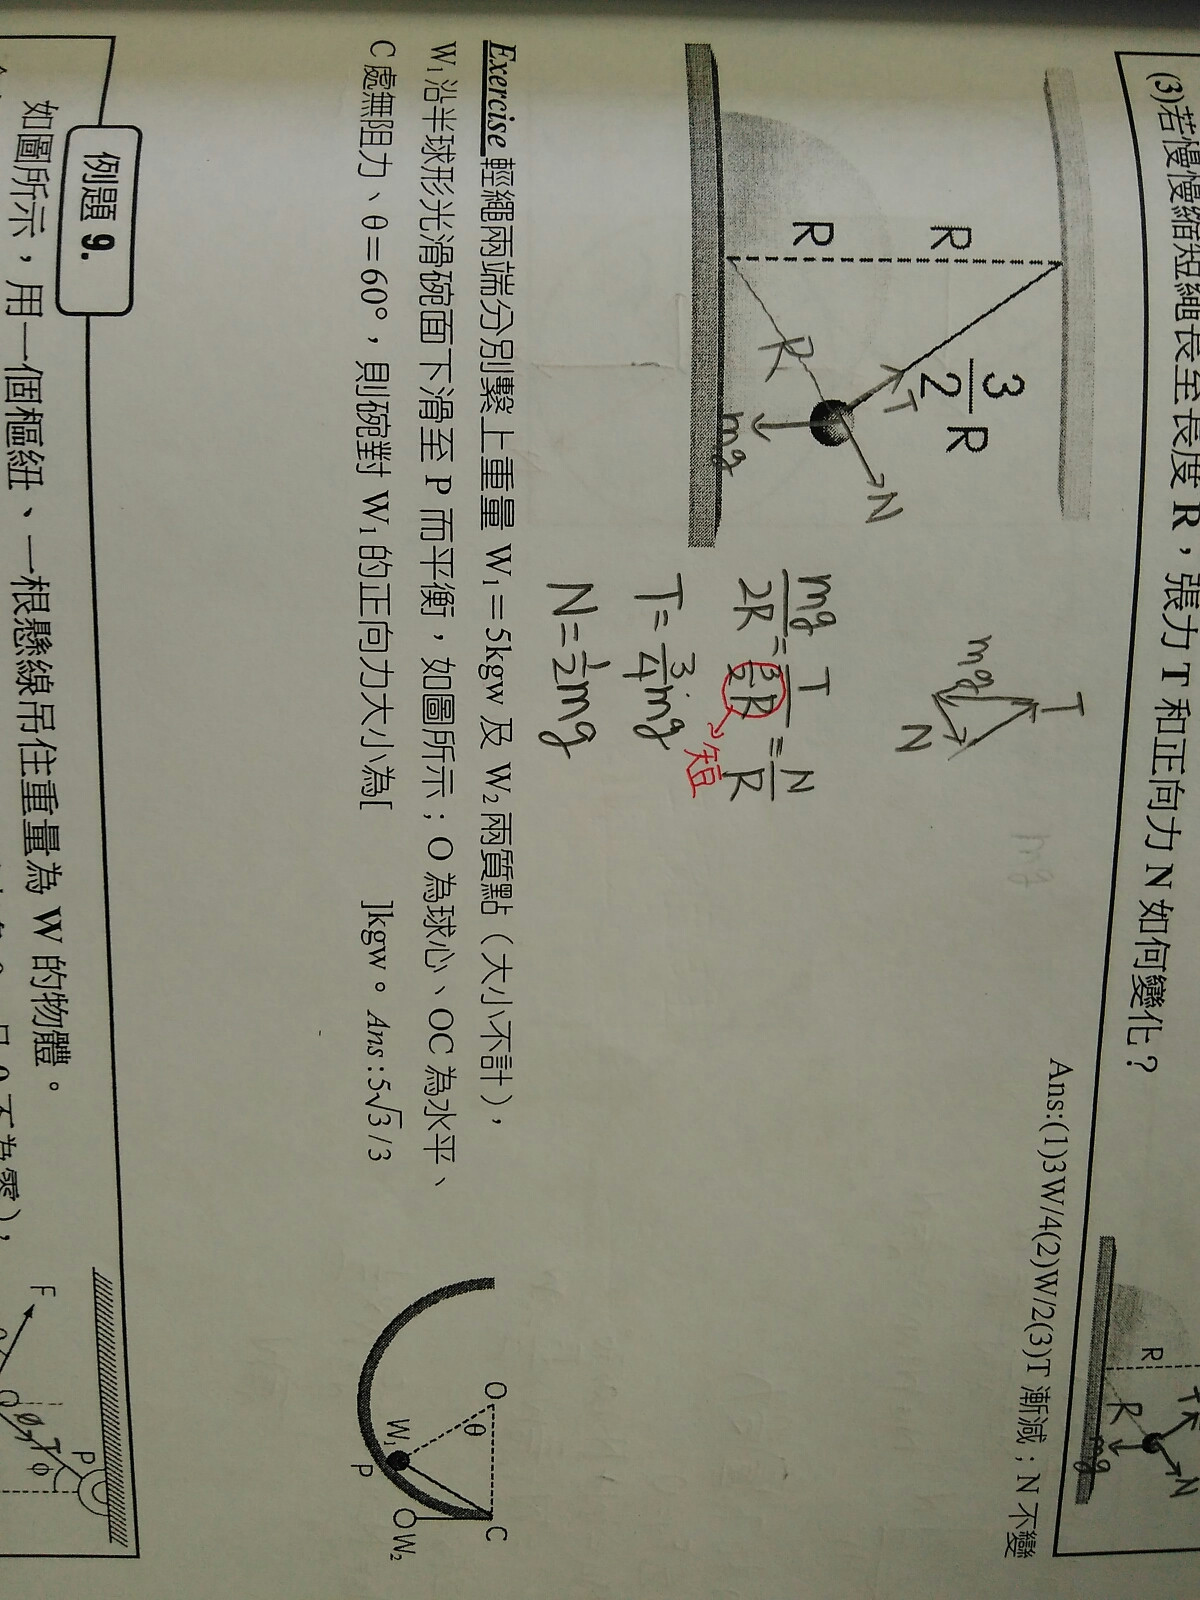 (3)若慢慢縮短繩長至長度 R，張力 T 和正向力 N 如何變化？
Ans:(1)3W/4(2)W/2(3)T 漸減；N 不變
R
R
3/2 R
R
T
mg
N
T
mg
N
mg
mg/2R = T/(3/2 R) = N/R
短
T = 3/4 mg
N = 1/2 mg
R
R
T
N
mg
Exercise 輕繩兩端分別繫上重量 W₁＝5kgw 及 W₂兩質點（大小不計），
W₁沿半球形光滑碗面下滑至 P 而平衡，如圖所示；O 為球心、OC 為水平、
C 處無阻力、θ＝60°，則碗對 W₁的正向力大小為[ ]kgw。Ans:5√3/3
O
θ
C
W₁
P
W₂
例題 9.
如圖所示，用一個樞紐、一根懸線吊住重量為 W 的物體。
F
θ
T
φ
P